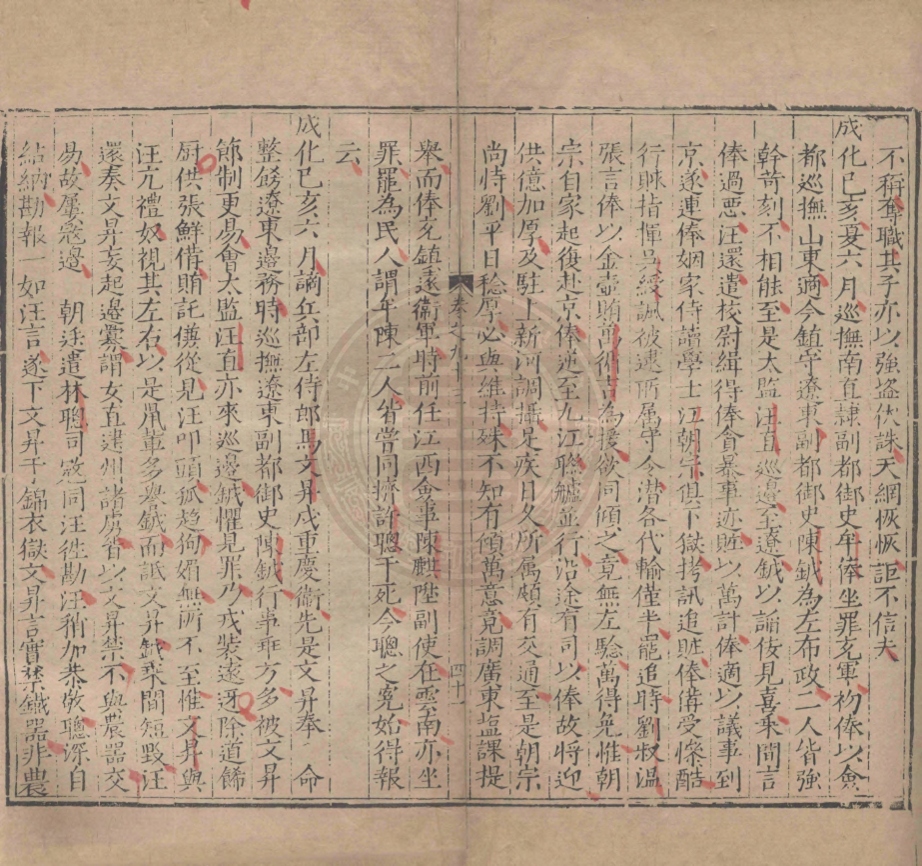 不稱奪職其子亦以強盜伏誅天網恢恢詎不信夫
成化己亥夏六月巡撫南直隸副都御史牟俸坐罪充軍初俸以僉
都巡撫山東適今鎮守遼東副都御史陳鉞為左布政二人皆強
幹苛刻不相能至是太監汪直巡邊至遼鉞以諂佞見喜乘間言
俸過惡汪還遣校尉緝得俸貪暴事迹賍以萬計俸適以議事到
京遂連俸姻家侍讀學士江朝宗俱下獄拷訊追賍俸備受慘酷
行賕指揮吳綬諷彼逮所屬守令潛各代輸僅半罷追時劉叔溫
張言俸以金壺賄萬術吉為援欲同傾之竟無左驗萬得免惟朝
宗自家起復赴京俸迎至九江聯艫並行沿途有司以俸故將迎
供億加厚及駐上新河調攝足疾日久所屬頗有交通至是朝宗
尚恃劉平日稔厚必與維持殊不知有傾萬意竟調廣東塩課提
卷之九十三 四十一
舉而俸充鎮遠衛軍時前任江西僉事陳麒陞副使在雲南亦坐
罪罷為民人謂牟陳二人皆嘗同擠許聰于死今聰之冤始得報
云
成化己亥六月謫兵部左侍郎馬文昇戍重慶衛先是文昇奉 命
整飭遼東邊務時巡撫遼東副都御史陳鉞行事乖方多被文昇
節制更易會太監汪直亦來巡邊鉞懼見罪乃戎裝遠迓除道飾
厨供張鮮備賄託僕從見汪叩頭狐趨狗媚無所不至惟文昇與
汪亢禮奴視其左右以是鼠輩多譽鉞而詆文昇鉞乘間短毀汪
還奏文昇妄起邊釁謂女直建州諸虜皆以文昇禁不與農器交
易故屢寇邊 朝廷遣林聰司寇同汪徃勘汪稍加恭敬聰深自
結納勘報一如汪言遂下文昇于錦衣獄文昇言實禁鐵器非農